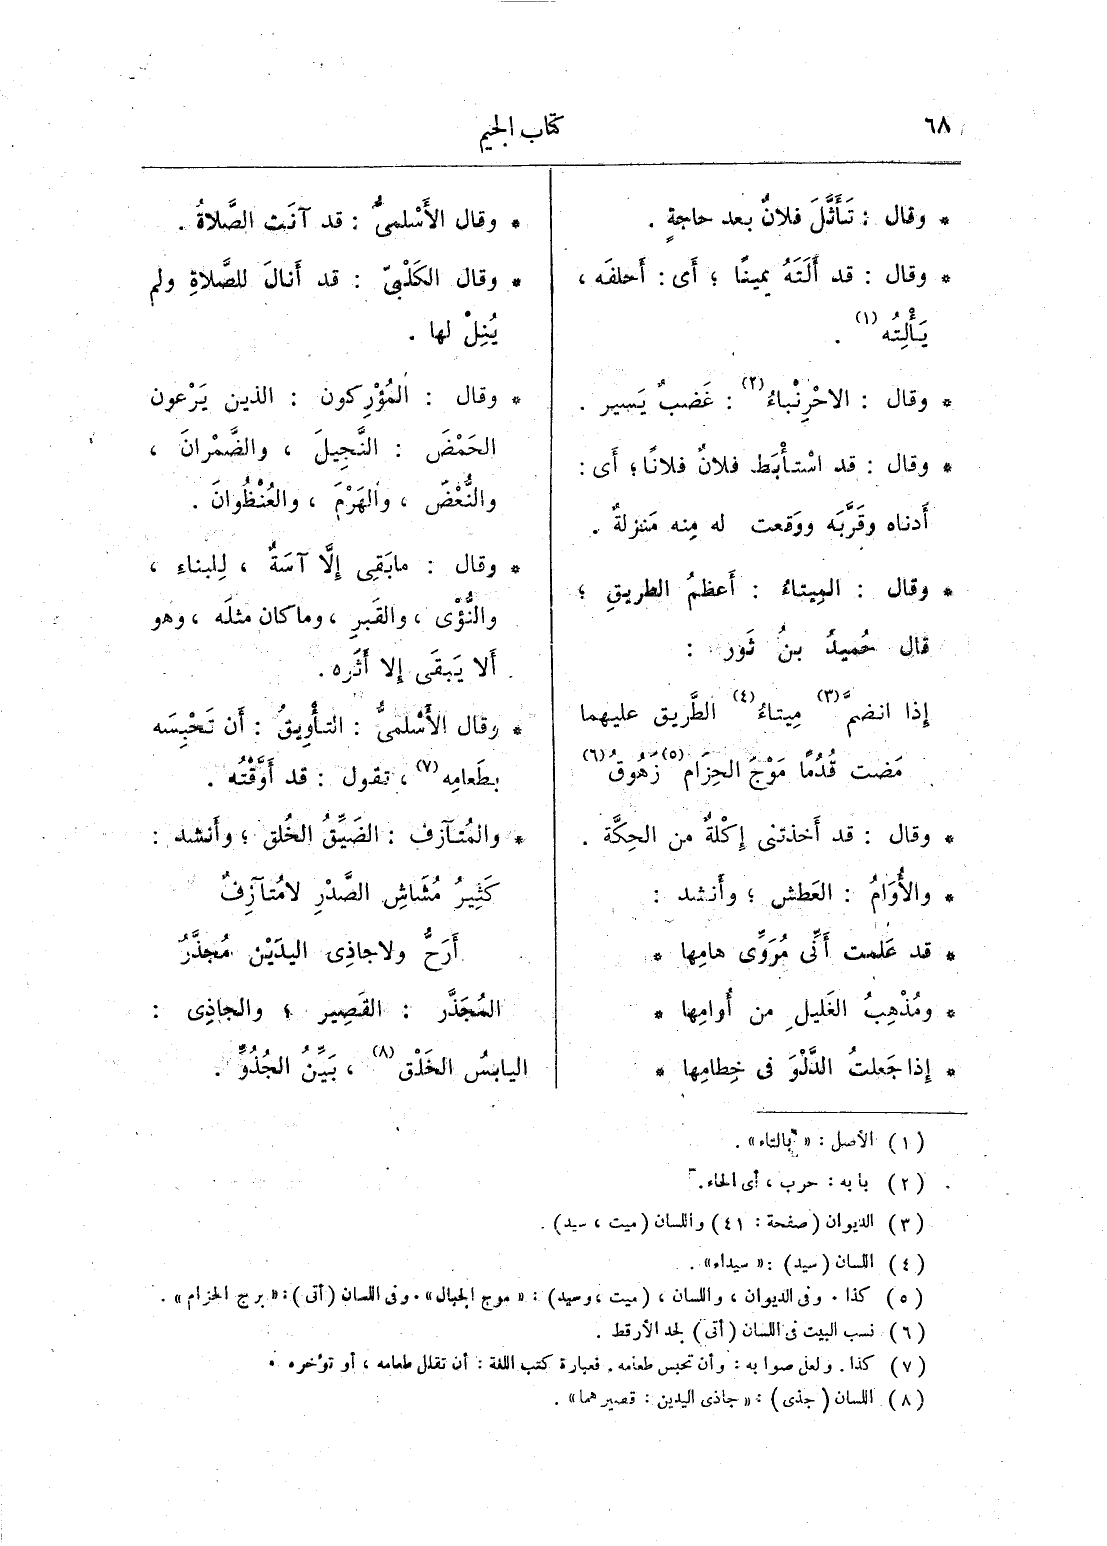 ٦٨
كتاب الجيم
* وقال : تَأَثَّلَ فلانٌ بعد حاجةٍ .
* وقال : قد أَلَتَهُ يمينًا ؛ أى : أَحلفَه ،
يَأْلِتُه (١) .
* وقال : الاحْرِنْباءُ (٢) : غَضبٌ يَسير .
* وقال : قد اسْتأْبَط فلانٌ فلانًا ؛ أى :
أدناه وقَرَّبَه ووَقعت له مِنه مَنزلةٌ .
* وقال : المِيتاءُ : أَعظمُ الطريقِ ؛
قال حُميدُ بنُ ثَور :
إذا انضم (٣) مِيتاءُ (٤) الطَّريق عليهما
مَضت قُدُمًا مَوْجَ الحِزَام (٥) زَهُوقُ (٦)
* وقال : قد أَخذتنى إِكْلةٌ من الحِكَّة .
* والأُوَامُ : العَطش ؛ وأَنشد :
* قد عَلمت أَنِّى مُرَوِّى هامِها *
* ومُذْهِبُ الغَليلِ من أُوامِها *
* إِذا جَعلتُ الدَّلْوَ فى خِطامِها *
* وقال الأَسْلمىُّ : قد آنَت الصَّلاةُ .
* وقال الكَلْبىّ : قد أَنالَ للصَّلاةِ ولم
يُنِلْ لها .
* وقال : المُؤْرِكون : الذين يَرْعون
الحَمْضَ : النَّجِيلَ ، والضَّمْرانَ ،
والنُّغْضَ ، والهَرْمَ ، والعُنْظُوانَ .
* وقال : مابَقى إِلَّا آسَةٌ ، لِلبناءِ ،
والنُّؤْى ، والقَبرِ ، وماكان مثلَه ، وهو
أَلا يَبقَى إِلا أَثَره .
* وقال الأَسْلمىُّ : التأْوِيقُ : أَن تَحْبِسَه
بطَعامِه (٧) ، تقول : قد أَوَّقْتُه .
* والمُتآزف : الضَيِّقُ الخُلق ؛ وأَنشد :
كَثِيرُ مُشَاشِ الصَّدْرِ لامُتآزِفٌ
أَرَحُّ ولاجاذِى اليدَيْن مُجذَّرُ
المُجَذَّر : القَصِير ؛ والجاذِى :
اليابسُ الخَلْق (٨) ، بَيِّنُ الجُذُوِّ .
(١) الأصل : « بالتاء » .
(٢) بابه : حرب ، أى الحاء .
(٣) الديوان (صفحة : ٤١) واللسان (ميت ، سيد) .
(٤) اللسان (سيد) : « سيداء » .
(٥) كذا . وفى الديوان ، واللسان ، (ميت ، وسيد) : « موج الحبال » . وفى اللسان (أتى) : « برج الحزام » .
(٦) نسب البيت فى اللسان (أتى) لحد الأرقط .
(٧) كذا . ولعل صوابه : وأن تحبس طعامه . فعبارة كتب اللغة : أن تقلل طعامه ، أو تؤخره .
(٨) اللسان (جذى) : « جاذى اليدين : قصيرهما » .